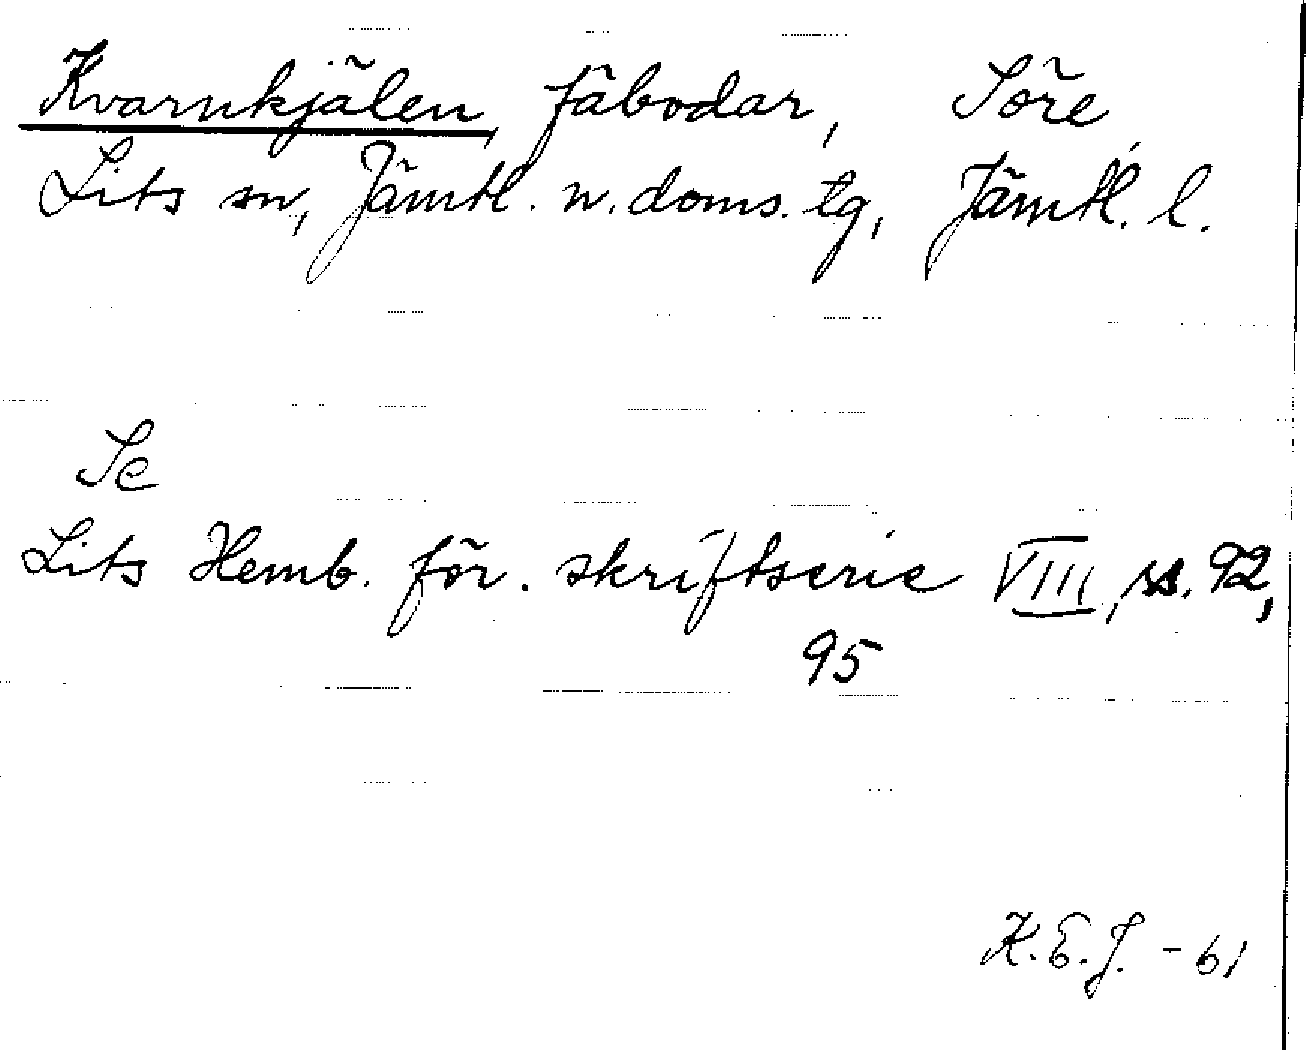 Kvarnkjälen, fäbodar, Söre,
Lits sn, Jämtl. n. doms. tg, Jämtl. l.
Se
Lits Hemb. för. skriftserie VIII, ss. 92,
95
K.E.J. - 61